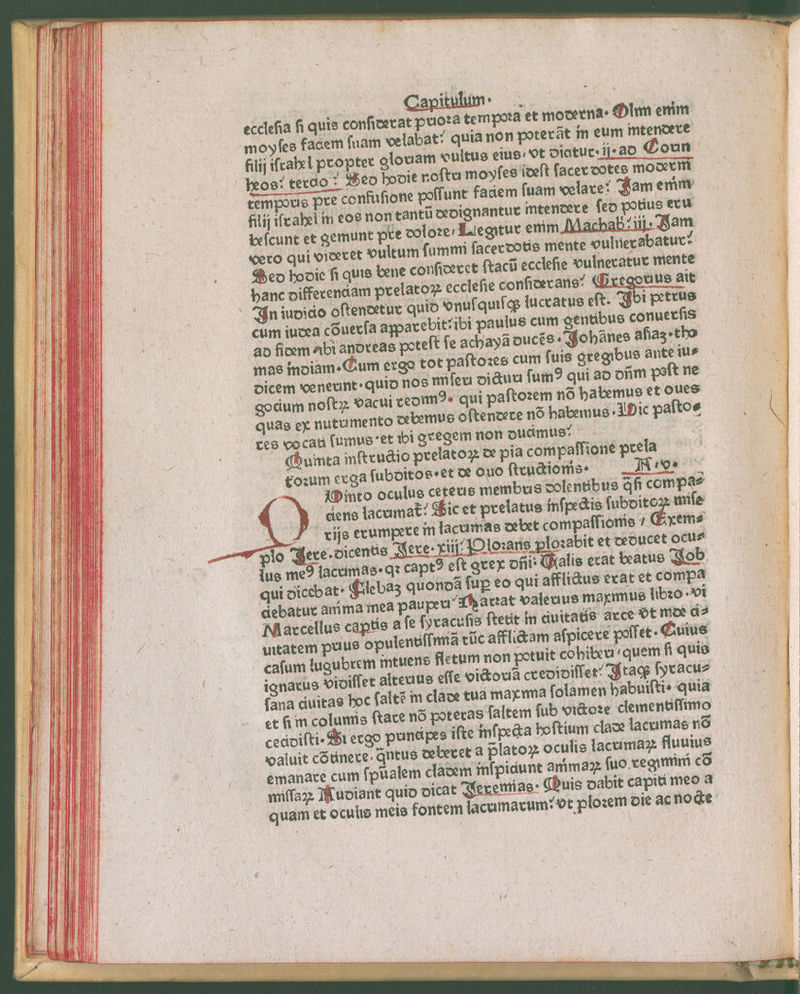 Capitulum·
ecclesia si quis considerat priora tempora et moderna· Olim enim
moyses faciem suam velabat: quia non poterāt in eum intendere
filij israhel propter gloriam vultus eius, vt dicitur· ij· ad Corin
theos: tercio: Sed hodie nostri moyses idest sacerdotes moderni
temporis pre confusione possunt faciem suam velare: Jam enim
filij israhel in eos non tantū dedignantur intendere sed potius eru
bescunt et gemunt pre dolore, Legitur enim Machab: iij· Jam
vero qui videret vultum summi sacerdotis mente vulnerabatur:
Sed hodie si quis bene consideret stacū ecclesie vulneratur mente
hanc differenciam prelatoꝝ ecclesie considerans: Gregorius ait
In iudicio ostendetur quid vnusquisqꝫ lucratus est· Ibi petrus
cum iudea cōuersa apparebit: ibi paulus cum gentibus conuersis
ad fidem ibi andreas potest se achayā ducēs· Johānes asiaꝫ· tho
mas indiam· Cum ergo tot pastores cum suis gregibus ante iu⸗
dicem venerint· quid nos miseri dicturi sumꝰ qui ad dn̄m post ne
gocium nostꝝ vacui redimꝰ· qui pastorem nō habemus et oues
quas ex nutrimento debemus ostendere nō habemus· Hic pasto⸗
res vocati sumus· et ibi gregem non ducimus:
Quinta instructio prelatoꝝ de pia compassione prela
torum erga subditos· et de quo structionis· R· v·
Qvinto oculus ceteris membris dolentibus q̄si compa⸗
ciens lacrimat: Sic et prelatus inspectis subditoꝝ mise
rijs erumpere in lacrimas debet compassionis / Exem⸗
plo Jere· dicentis Jere· xiij: Plorans plorabit et deducet ocu⸗
lus meꝰ lacrimas· qꝛ captꝰ est grex dn̄i: Talis erat beatus Job
qui dicebat· Flebaꝫ quondā sup̄ eo qui afflictus erat et compa
ciebatur anima mea pauperi: Narrat valerius maximus libro· vi
Marcellus captis a se syracusis stetit in ciuitatis arce vt inde ci⸗
uitatem prius opulentissimā tūc afflictam aspicere posset· Cuius
casum lugubrem intuens fletum non potuit cohiberi, quem si quis
ignarus vidisset alterius esse victoriā credidisset: Itaqꝫ syracu⸗
sana ciuitas hoc saltē in clade tua maxima solamen habuisti· quia
et si in columis stare nō poteras saltem sub victore clementissimo
cecidisti· Si ergo principes iste inspecta hostium clade lacrimas nō
valuit cōtinere· q̄ntus deberet a p̄latoꝝ oculis lacrimaꝝ fluuius
emanare cum sp̄ualem cladem inspiciunt animaꝝ suo regimini cō
missaꝝ Audiant quid dicat Jeremias· Quis dabit capiti meo a
quam et oculis meis fontem lacrimarum: vt plorem die ac nocte